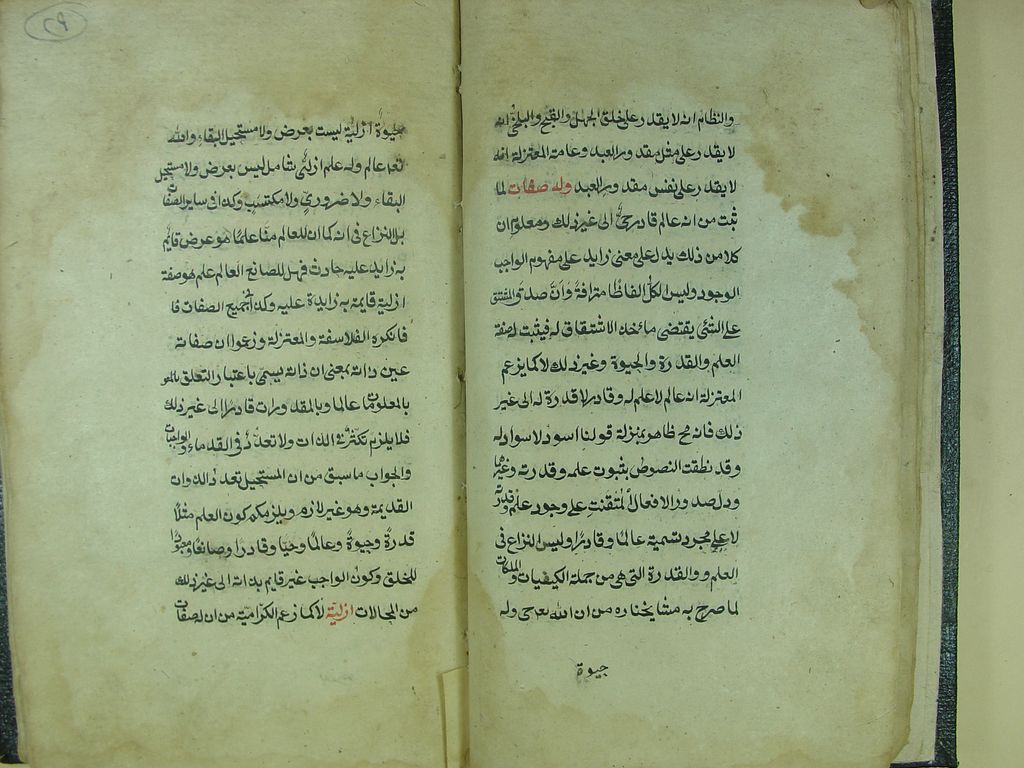 والنظام انه لا يقدر على خلق الجهل والقبح والبلخى انه
لا يقدر على مثل مقدور العبد وعامة المعتزلة انه
لا يقدر على نفس مقدور العبد وله صفات لما
ثبت من انه عالم قادر حى الى غير ذلك ومعلوم ان
كلا من ذلك يدل على معنى زايد على مفهوم الواجب
الوجود وليس الكل الفاظا مترافة وان صدق المشتق
على الشئ يقتضى ماخذ الاشتقاق له فيثبت له صفة
العلم والقدرة والحيوة وغير ذلك لا كما يزعم
المعتزلة انه عالم لا علم له وقادر لا قدرة له الى غير
ذلك فانه مح ظاهر بمنزلة قولنا اسود لا سواد له
وقد نطقت النصوص بثبوت علمه وقدرته وغيرها
ودل صدور الافعال المتقنة على وجود علمه وقدرته
لا على مجرد تسمية عالما وقادرا وليس النزاع فى
العلم والقدرة التى هى من جملة الكيفيات والملكات
لما صرح به مشايخنا ره من ان الله تعه حى وله
حيوة
٢٩
حيوة ازلية ليست بعرض ولا مستحيل البقاء والله
تعه عالم وله علم ازلى شامل ليس بعرض ولا مستحيل
البقاء ولا ضرورى ولا مكتسب وكذا فى ساير الصفات
بل النزاع فى انه كما ان للعالم منا علما هو عرض قايم
به زايد عليه حادث فهل للصانع العالم علم هو صفة
ازلية قايمة به زايدة عليه وكذا جميع الصفات فا
فانكره الفلاسفة والمعتزلة وزعموا ان صفاته
عين ذاته بمعنى ان ذاته يسمى باعتبار التعلق بالمع
بالمعلومات عالما وبالمقدورات قادرا الى غير ذلك
فلا يلزم تكثر فى الذات ولا تعدد فى القدماء والواجبات
والجواب ما سبق من ان المستحيل تعدد الذوات
القديمة وهو غير لازم ويلزمكم كون العلم مثلا
قدرة وحيوة وعالما وحيا وقادرا وصانعا ومعبودا
للخلق وكون الواجب غير قايم بذاته الى غير ذلك
من المحالات ازلية لا كما زعم الكرامية من ان له صفات